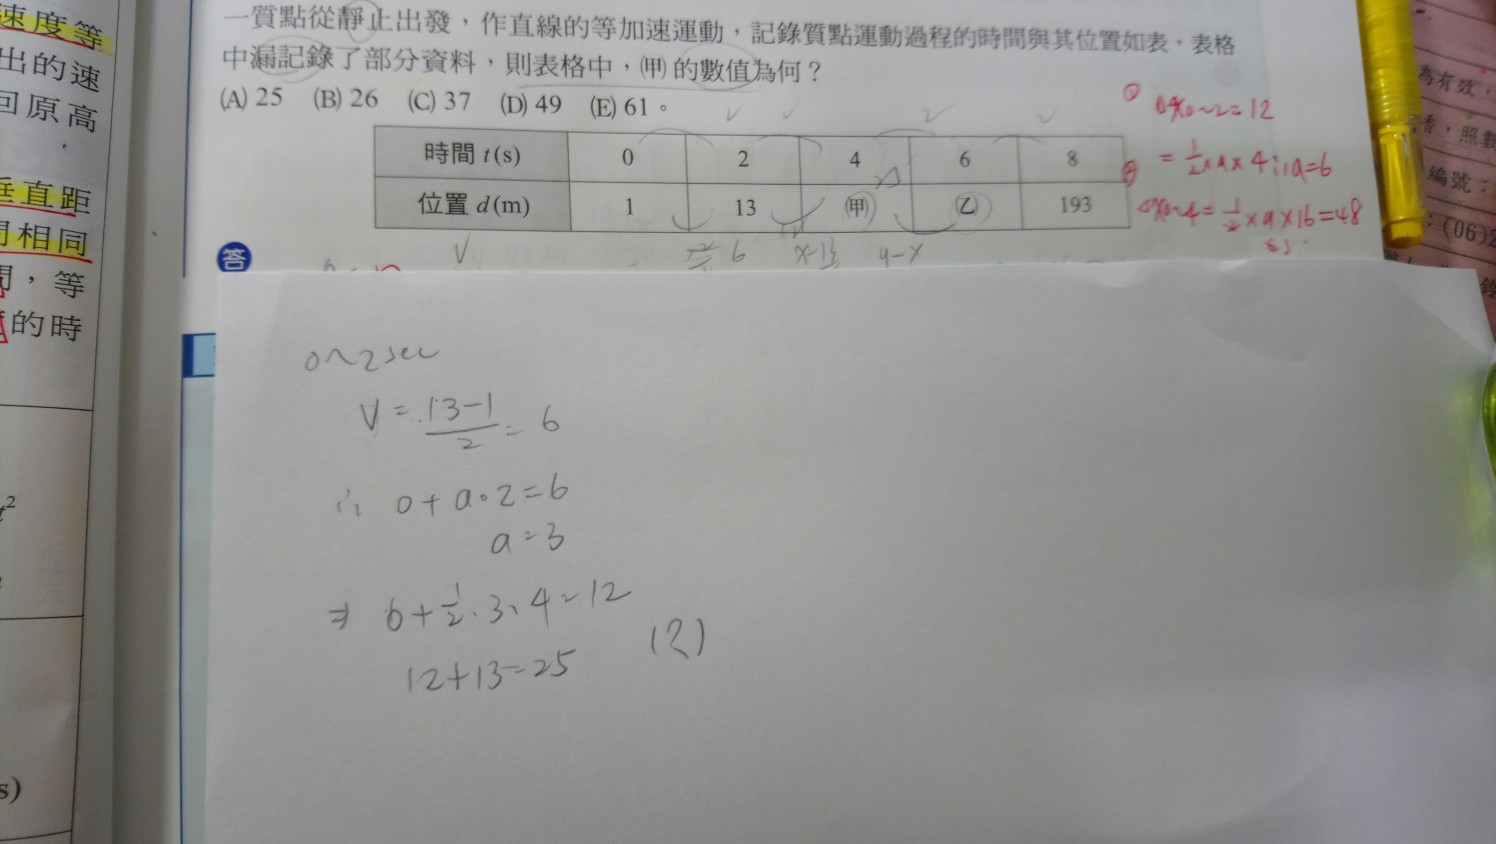 速度等
出的速
回原高
垂直距
相同
,等
的時
t²
s)
一質點從靜止出發,作直線的等加速運動,記錄質點運動過程的時間與其位置如表,表格
中漏記錄了部分資料,則表格中,㈙的數值為何?
(A) 25 (B) 26 (C) 37 (D) 49 (E) 61。
時間 t(s) 0 2 4 6 8
位置 d(m) 1 13 ㊙甲 ㊚乙 193
答
6 x-13 y-x
① Δx0~2=12
= ½×a×4 ∴a=6
② Δx0~4=½×a×16=48
為有效,
照數
編號:
:(06)2
0~2sec
V=13-1/2=6
∴ 0+a·2=6
a=3
⇒ 6+½·3·4=12
12+13=25 (?)